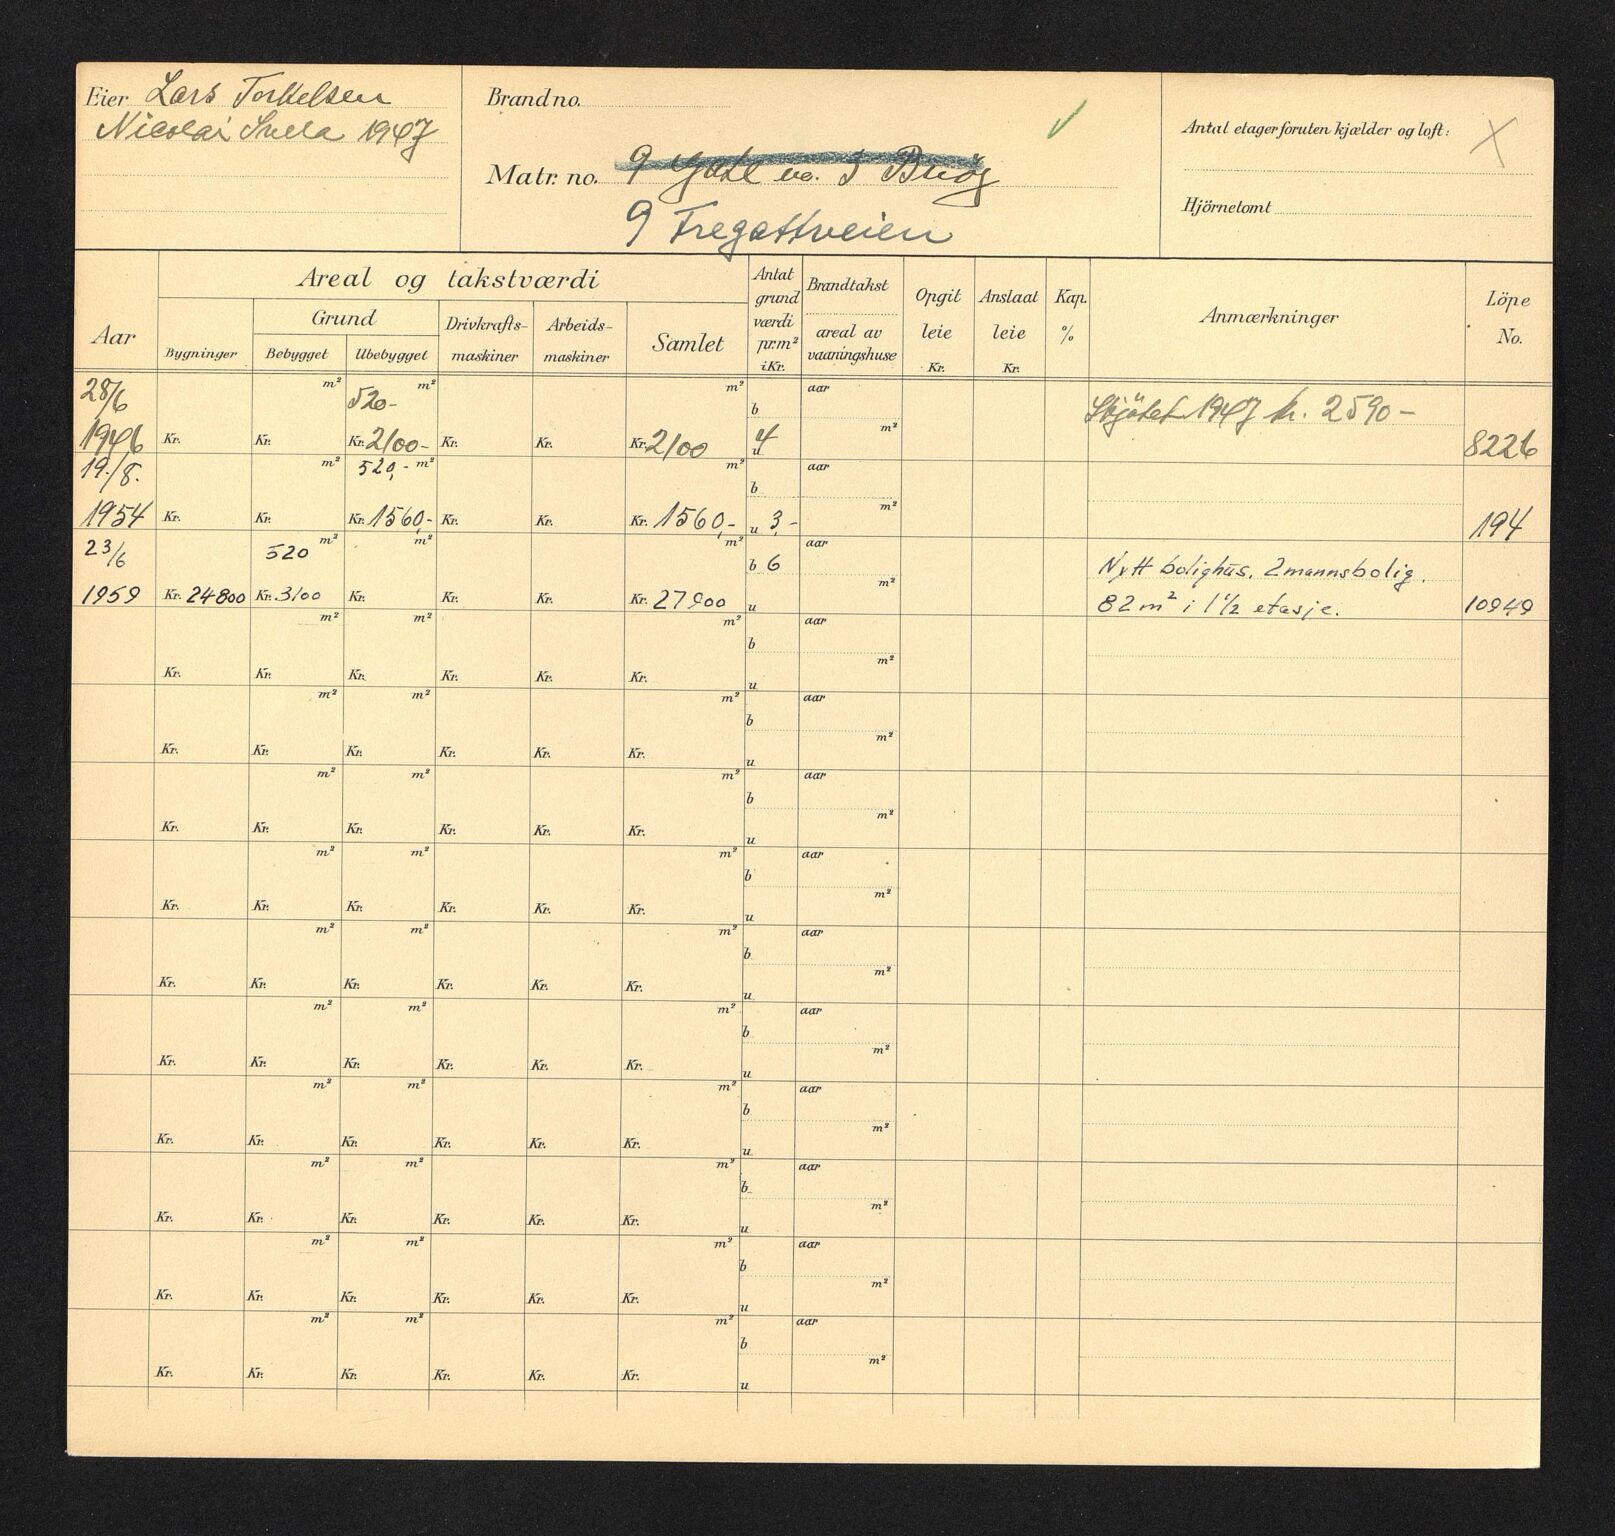 Eier Lars Torkelsen
Nicolai Snela 1947
Brandno.
Matr. no. 9 Gate no. 3 Buøy
9 Fregattveien
Antal etager foruten kjælder og loft: X
Hjörnetomt
Aar
Areal og takstværdi
Bygninger
Grund
Bebygget
Ubebygget
Drivkrafts-
maskiner
Arbeids-
maskiner
Samlet
Antat
grund
værdi
pr.m²
i Kr.
Brandtakst
areal av
vaaningshuse
Opgit
leie
Kr.
Anslaat
leie
Kr.
Kap.
%
Anmærkninger
Löpe
No.
28/6 m² 520- m² m² b aar Skjøtet 1947 kr. 2590-
1946 Kr. Kr. Kr. 2100- Kr. Kr. Kr. 2100 u 4 m² 8226
19./8. m² 520,- m² m² b aar
1954 Kr. Kr. Kr. 1560,- Kr. Kr. Kr. 1560,- u 3,- m² 194
23/6 520 m² m² m² b 6 aar Nytt bolighus. 2mannsbolig.
1959 Kr. 24800 Kr. 3100 Kr. Kr. Kr. Kr. 27900 u m² 82 m² i 1 1/2 etasje. 10949
m² m² m² b aar
Kr. Kr. Kr. Kr. Kr. Kr. u m²
m² m² m² b aar
Kr. Kr. Kr. Kr. Kr. Kr. u m²
m² m² m² b aar
Kr. Kr. Kr. Kr. Kr. Kr. u m²
m² m² m² b aar
Kr. Kr. Kr. Kr. Kr. Kr. u m²
m² m² m² b aar
Kr. Kr. Kr. Kr. Kr. Kr. u m²
m² m² m² b aar
Kr. Kr. Kr. Kr. Kr. Kr. u m²
m² m² m² b aar
Kr. Kr. Kr. Kr. Kr. Kr. u m²
m² m² m² b aar
Kr. Kr. Kr. Kr. Kr. Kr. u m²
m² m² m² b aar
Kr. Kr. Kr. Kr. Kr. Kr. u m²
m² m² m² b aar
Kr. Kr. Kr. Kr. Kr. Kr. u m²